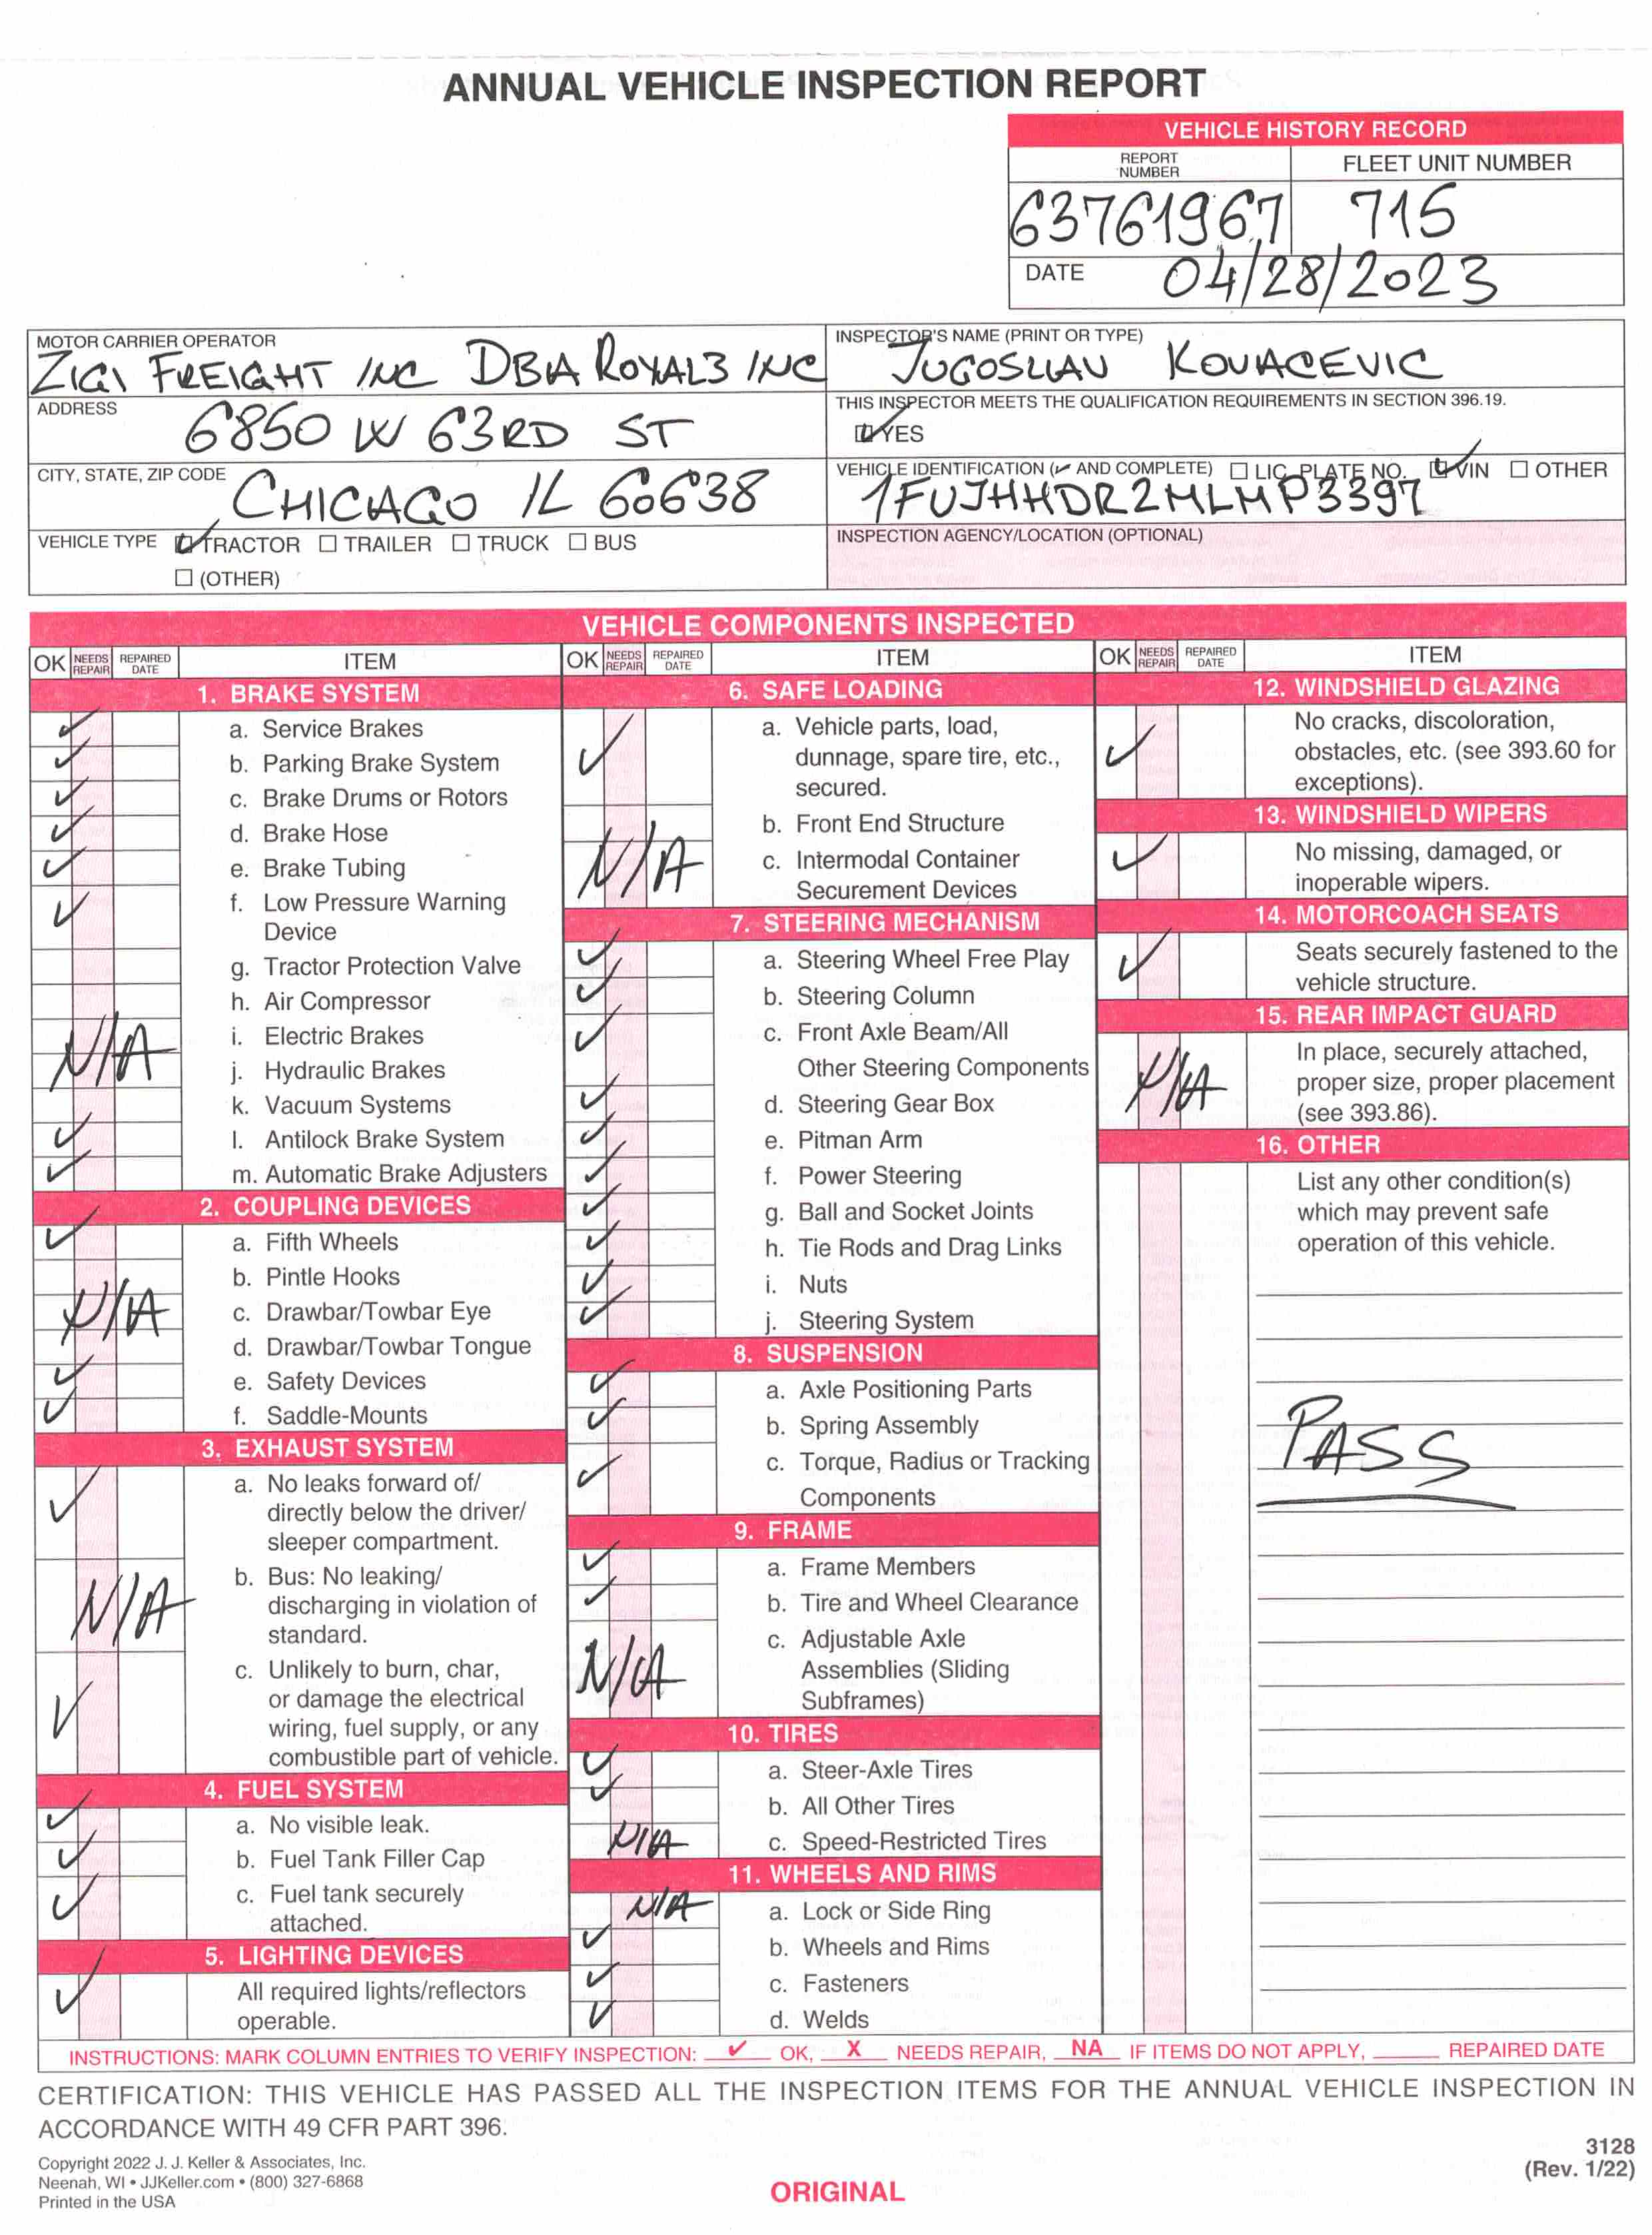 ANNUAL VEHICLE INSPECTION REPORT
VEHICLE HISTORY RECORD
REPORT NUMBER
FLEET UNIT NUMBER
63761967
715
DATE 04/28/2023
MOTOR CARRIER OPERATOR
ZIGI FREIGHT INC DBA ROYAL3 INC
ADDRESS
6850 W 63RD ST
CITY, STATE, ZIP CODE
CHICAGO IL 60638
VEHICLE TYPE ☑ TRACTOR ☐ TRAILER ☐ TRUCK ☐ BUS
☐ (OTHER)
INSPECTOR'S NAME (PRINT OR TYPE)
JUGOSLAV KOVACEVIC
THIS INSPECTOR MEETS THE QUALIFICATION REQUIREMENTS IN SECTION 396.19.
☑ YES
VEHICLE IDENTIFICATION (✓ AND COMPLETE) ☐ LIC. PLATE NO. ☑ VIN ☐ OTHER
1FUJHHDR2MLMP3397
INSPECTION AGENCY/LOCATION (OPTIONAL)
VEHICLE COMPONENTS INSPECTED
OK NEEDS REPAIR REPAIRED DATE ITEM
1. BRAKE SYSTEM
✓ a. Service Brakes
✓ b. Parking Brake System
✓ c. Brake Drums or Rotors
✓ d. Brake Hose
✓ e. Brake Tubing
✓ f. Low Pressure Warning
Device
g. Tractor Protection Valve
h. Air Compressor
N/A i. Electric Brakes
j. Hydraulic Brakes
k. Vacuum Systems
✓ l. Antilock Brake System
✓ m. Automatic Brake Adjusters
2. COUPLING DEVICES
✓ a. Fifth Wheels
b. Pintle Hooks
N/A c. Drawbar/Towbar Eye
d. Drawbar/Towbar Tongue
✓ e. Safety Devices
✓ f. Saddle-Mounts
3. EXHAUST SYSTEM
✓ a. No leaks forward of/
directly below the driver/
sleeper compartment.
N/A b. Bus: No leaking/
discharging in violation of
standard.
✓ c. Unlikely to burn, char,
or damage the electrical
wiring, fuel supply, or any
combustible part of vehicle.
4. FUEL SYSTEM
✓ a. No visible leak.
✓ b. Fuel Tank Filler Cap
✓ c. Fuel tank securely
attached.
5. LIGHTING DEVICES
✓ All required lights/reflectors
operable.
OK NEEDS REPAIR REPAIRED DATE ITEM
6. SAFE LOADING
✓ a. Vehicle parts, load,
dunnage, spare tire, etc.,
secured.
b. Front End Structure
N/A c. Intermodal Container
Securement Devices
7. STEERING MECHANISM
✓ a. Steering Wheel Free Play
✓ b. Steering Column
✓ c. Front Axle Beam/All
Other Steering Components
✓ d. Steering Gear Box
✓ e. Pitman Arm
✓ f. Power Steering
✓ g. Ball and Socket Joints
✓ h. Tie Rods and Drag Links
✓ i. Nuts
✓ j. Steering System
8. SUSPENSION
✓ a. Axle Positioning Parts
✓ b. Spring Assembly
✓ c. Torque, Radius or Tracking
Components
9. FRAME
✓ a. Frame Members
✓ b. Tire and Wheel Clearance
N/A c. Adjustable Axle
Assemblies (Sliding
Subframes)
10. TIRES
✓ a. Steer-Axle Tires
✓ b. All Other Tires
N/A c. Speed-Restricted Tires
11. WHEELS AND RIMS
N/A a. Lock or Side Ring
✓ b. Wheels and Rims
✓ c. Fasteners
✓ d. Welds
OK NEEDS REPAIR REPAIRED DATE ITEM
12. WINDSHIELD GLAZING
✓ No cracks, discoloration,
obstacles, etc. (see 393.60 for
exceptions).
13. WINDSHIELD WIPERS
✓ No missing, damaged, or
inoperable wipers.
14. MOTORCOACH SEATS
✓ Seats securely fastened to the
vehicle structure.
15. REAR IMPACT GUARD
N/A In place, securely attached,
proper size, proper placement
(see 393.86).
16. OTHER
List any other condition(s)
which may prevent safe
operation of this vehicle.
PASS
INSTRUCTIONS: MARK COLUMN ENTRIES TO VERIFY INSPECTION: ✓ OK, X NEEDS REPAIR, NA IF ITEMS DO NOT APPLY, ____ REPAIRED DATE
CERTIFICATION: THIS VEHICLE HAS PASSED ALL THE INSPECTION ITEMS FOR THE ANNUAL VEHICLE INSPECTION IN
ACCORDANCE WITH 49 CFR PART 396.
Copyright 2022 J. J. Keller & Associates, Inc.
Neenah, WI • JJKeller.com • (800) 327-6868
Printed in the USA
ORIGINAL
3128
(Rev. 1/22)